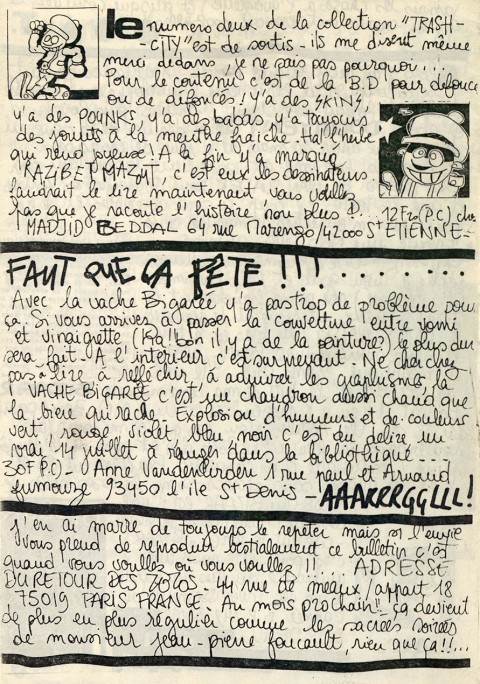 le numero deux de la collection "TRASH-
-CITY" est de sortis - ils me disent même
merci dedans, je ne pais pas pourquoi...
Pour le contenu c'est de la B.D pour defonce
ou de difoncés! Y'a des SKINS,
y'a des POUNKS, y'a des babas y'a toujours
des jouits à la menthe fraiche. Ha! l'herbe
qui rend joyeuse! A la fin y'a marqué
KAZIBET MAZAT, c'est eux les dessinateurs.
faudrait le lire maintenant vous voulez
pas que je raconte l'histoire non plus!)... 12Frs(P.C) chez
MADJID BEDDAL 64 rue Marengo/42000 St ETIENNE=
FAUT QUE ÇA PÊTE!!!........
Avec la vache Bigarée y'a pas trop de problème pour
ça. Si vous arrivez à passer la couverture entre vomi
et vinaigrette (Ka! bon il y a de la peinture?) le plus dur
sera fait. A l'interieur c'est surprenant. Ne cherchez
pas à lire à réflechir, à admirer les graphismes, la
VACHE BIGARÉE c'est un chaudron aussi chaud que
la bière qui rache. Explosion d'humeurs et de couleurs
vert, rouge, violet, bleu noir c'est du delire un
vrai 14 juillet à ranger dans la bibliothèque....
30F P.C) - Anne Vandenlinden 1 rue paul et Arnaud
fumouze 93450 l'ile St Denis - AAARRRGGLLL!
j'en ai marre de toujours le repeter mais si l'envie
vous prend de reproduire bestialement ce bulletin c'est
quand vous voullez où vous voullez!!... ADRESSE
DU RETOUR DES ZOZOS. 44 rue de meaux/appart 18
75019 PARIS FRANCE. Au mois prochain!!- ça devient
de plus en plus régulier comme les sacrées soirées
de monsieur jean-pierre foucault, rien que ça!!...